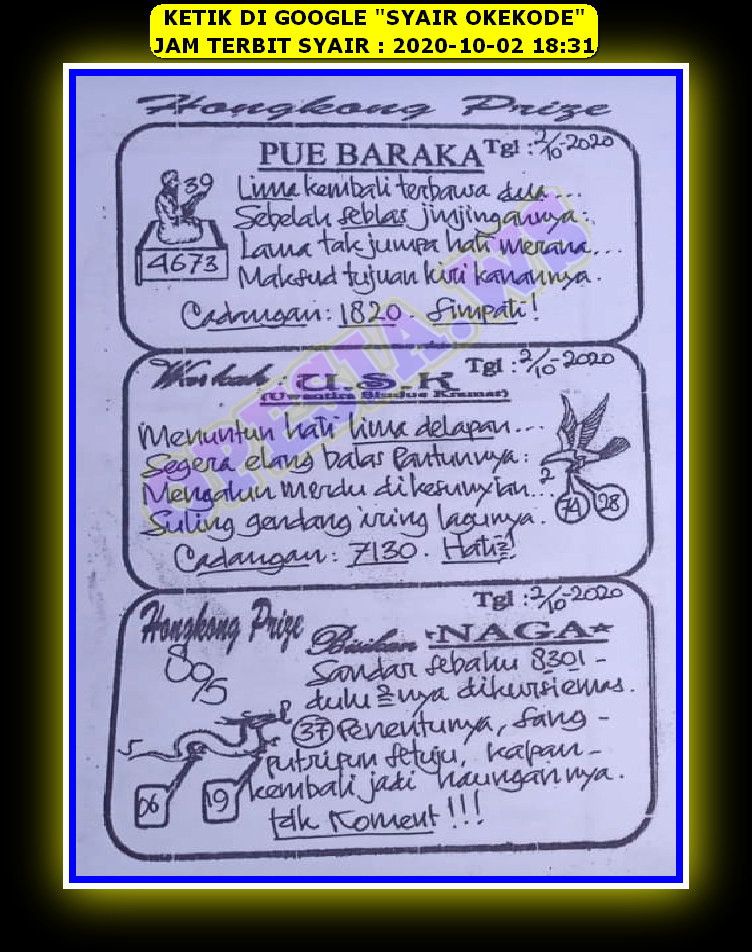 KETIK DI GOOGLE "SYAIR OKEKODE"
JAM TERBIT SYAIR : 2020-10-02 18:31
Hongkong Prize
PUE BARAKA
Tgl : 2/10-2020
39
4673
Lima kembali terbawa dua...
Sebelah seblas jinjingannya:.
Lama tak jumpa hati merana...
Maksud tujuan kiri kanannya.
Cadangan: 1820. Simpati!
OPESIA.WS
Warkah : U.S.K
Tgl : 2/10-2020
Menuntun hati lima delapan...
Segera elang balas pantunnya:
Mengalun merdu di kesunyian...
Suling gendang iring lagunya.
Cadangan: 7130. Hati2!
2
74 28
Tgl : 2/10-2020
Hongkong Prize
Bisikan *NAGA*
80/5
Sandar sebahu 8301-
dulu 2nya dikursi emas.
37 Penentunya, Sang-
putripun setuju, kapan-
kembali jadi naungannya.
tak Koment!!!
5
06 19